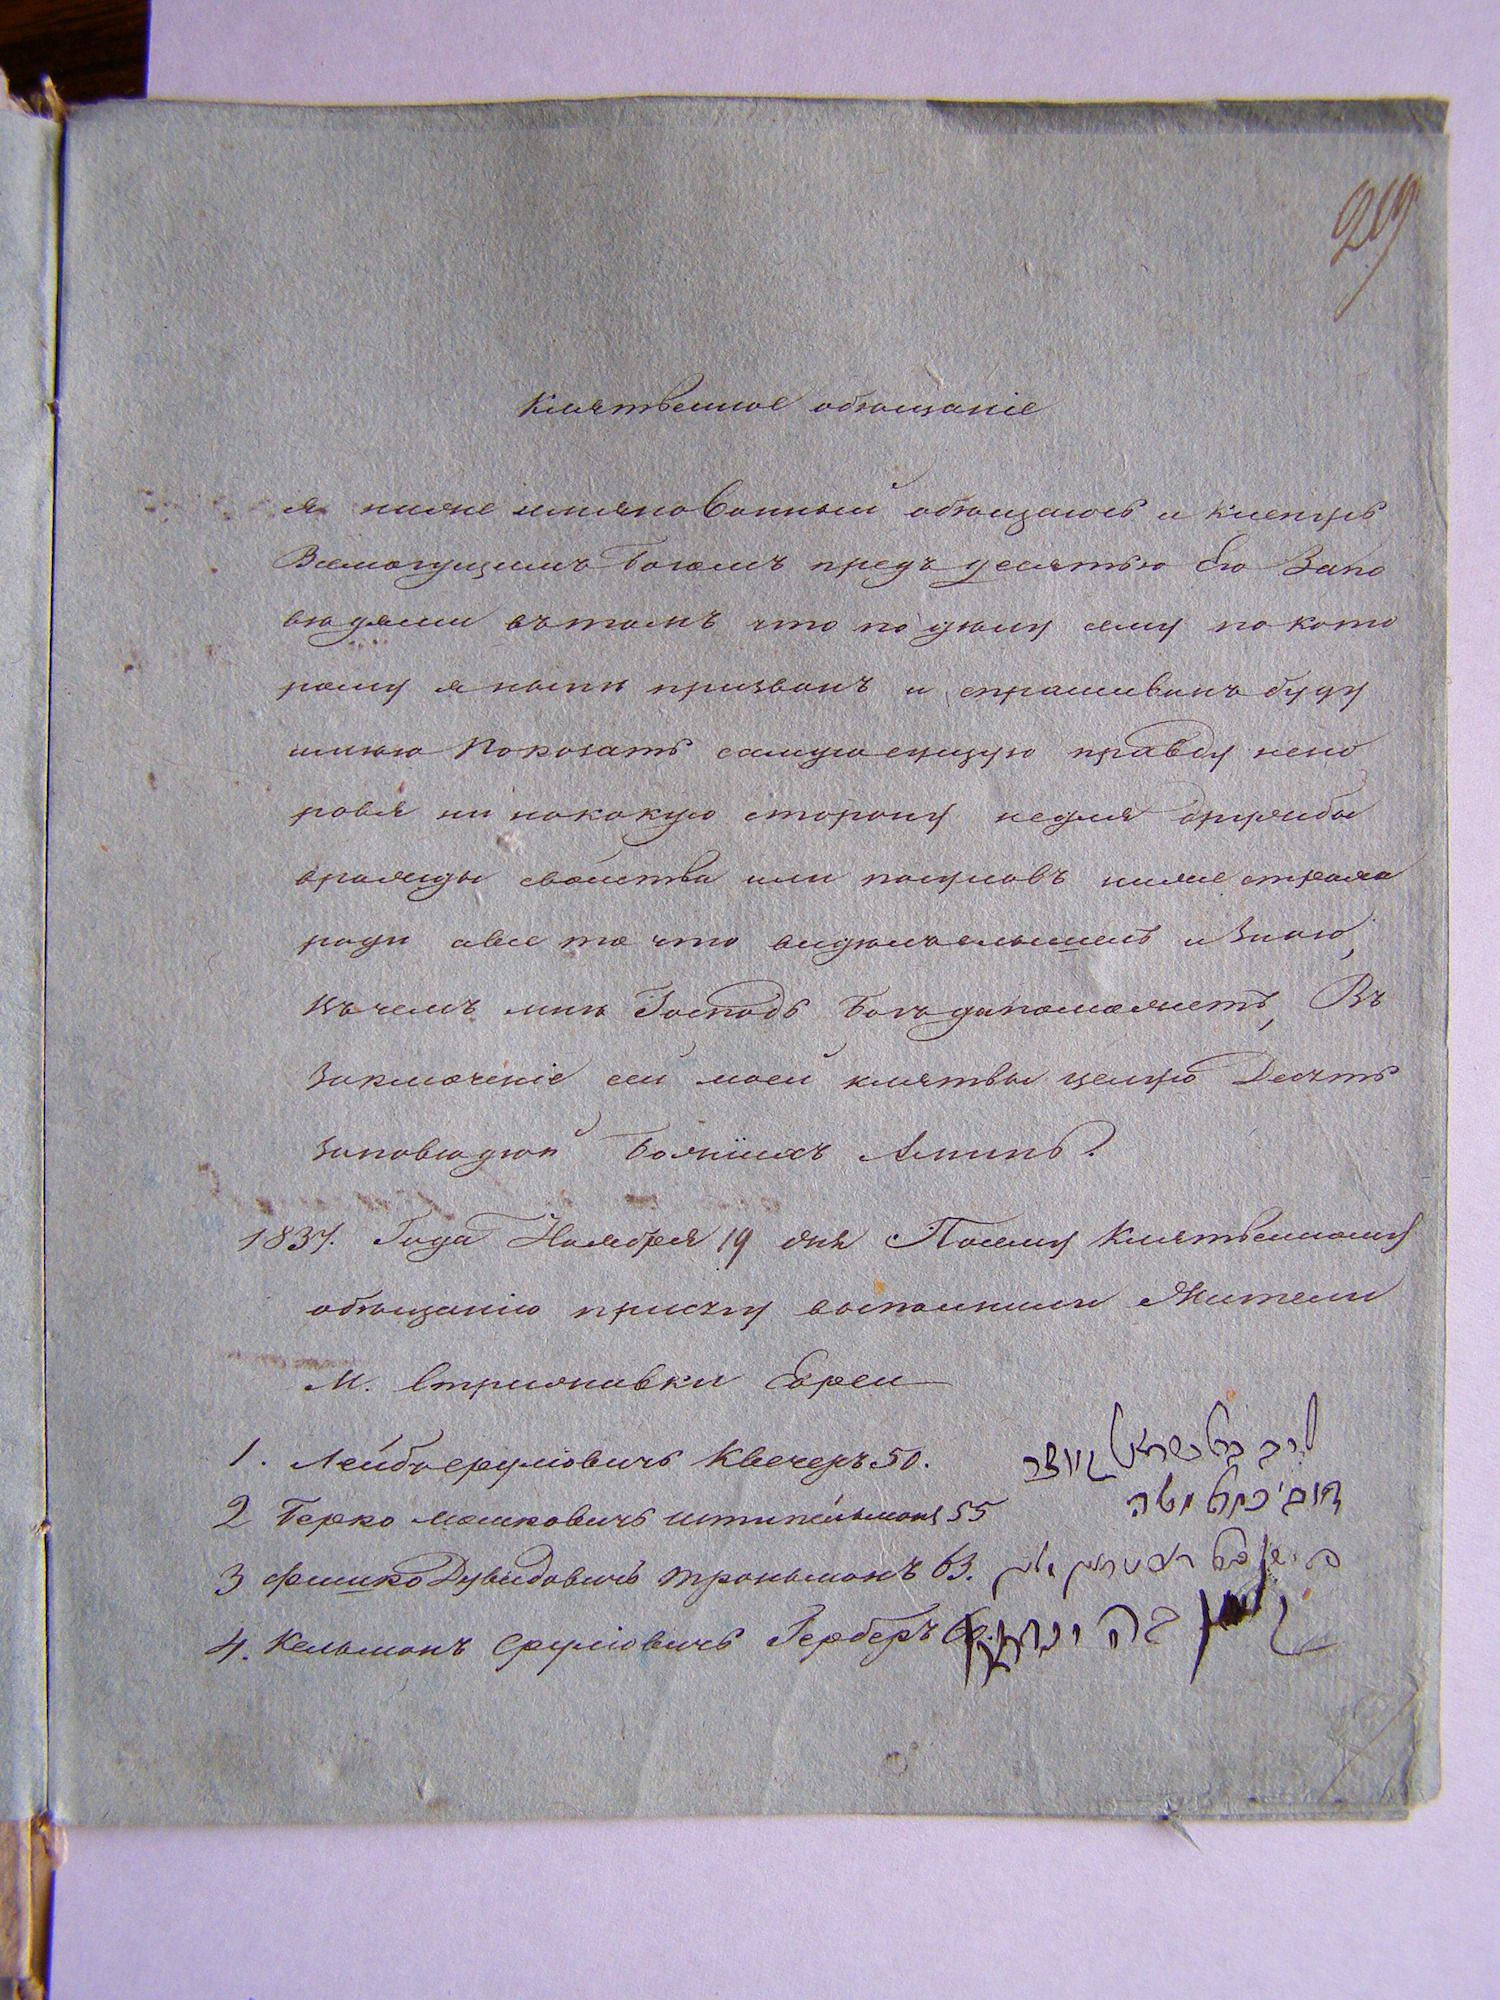 Клятвенное обѣщаніе
я ниже имянованный обѣщаюсь и кленусь
Всемогущимъ Богомъ предъ десятью Его Запо
вѣдями вътомъ что по дѣлу сему по кото
рому я нынѣ призванъ и спрашиванъ буду
имѣю показать самую сущую правду непо
ровя ни накакую сторону недля дружбы
вражды свойства или посуловъ ниже страха
ради авсе то что видѣлъ слышелъ и знаю,
въ чемъ мнѣ Господь Богъ да поможетъ, Въ
заключеніе сей моей клятвы целую Десять
заповѣдей Божіихъ Аминь.
1837. Года Ноября 19 дня Посему Клятвенному
обѣщанію присягу воспомнили Жители
М. Стрижавки Евреи
1. Лейбъ Сруліовичъ Квечеръ 50.
2 Берко Мошковичъ 55
3 Фишко Дувидовичъ 63.
4. Кельманъ Сруліовичъ Герберъ